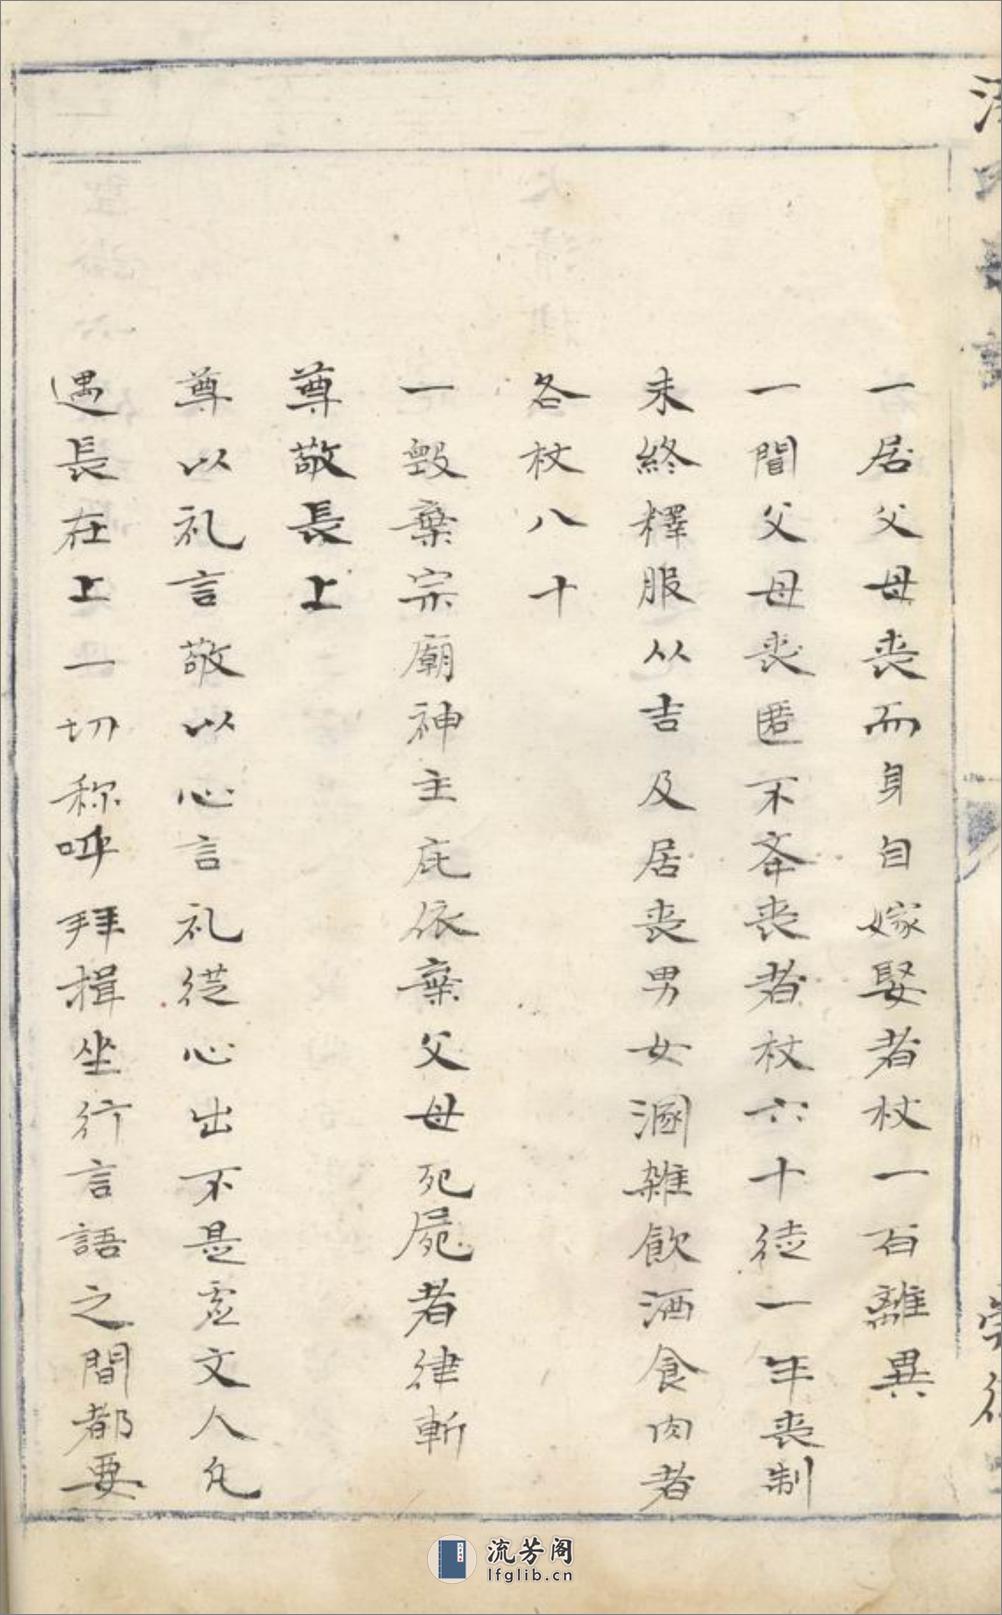 一居父母喪而身自嫁娶者杖一百離異
一聞父母喪匿不奔喪者杖六十徒一年喪制
未終釋服从吉及居喪男女溷雜飲酒食肉者
各杖八十
一毀棄宗廟神主庇依棄父母死屍者律斬
尊敬長上
尊以礼言敬以心言礼從心出不是虛文人凡
遇長在上一切称呼拜揖坐行言語之間都要
流芳阁
lfglib.cn